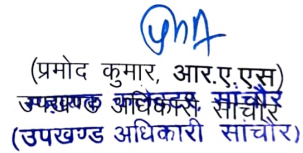 (प्रमोद कुमार, आर.ए.एस)
उपखण्ड अधिकारी सांचौर
(उपखण्ड अधिकारी सांचौर)